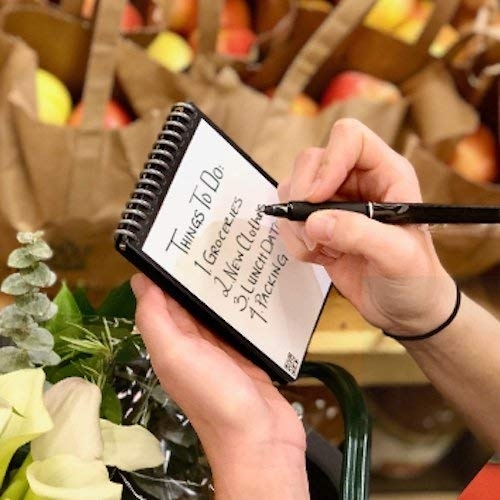 Things To Do:
1. Groceries
2. New Clothes
3. Lunch Date
4. Packing